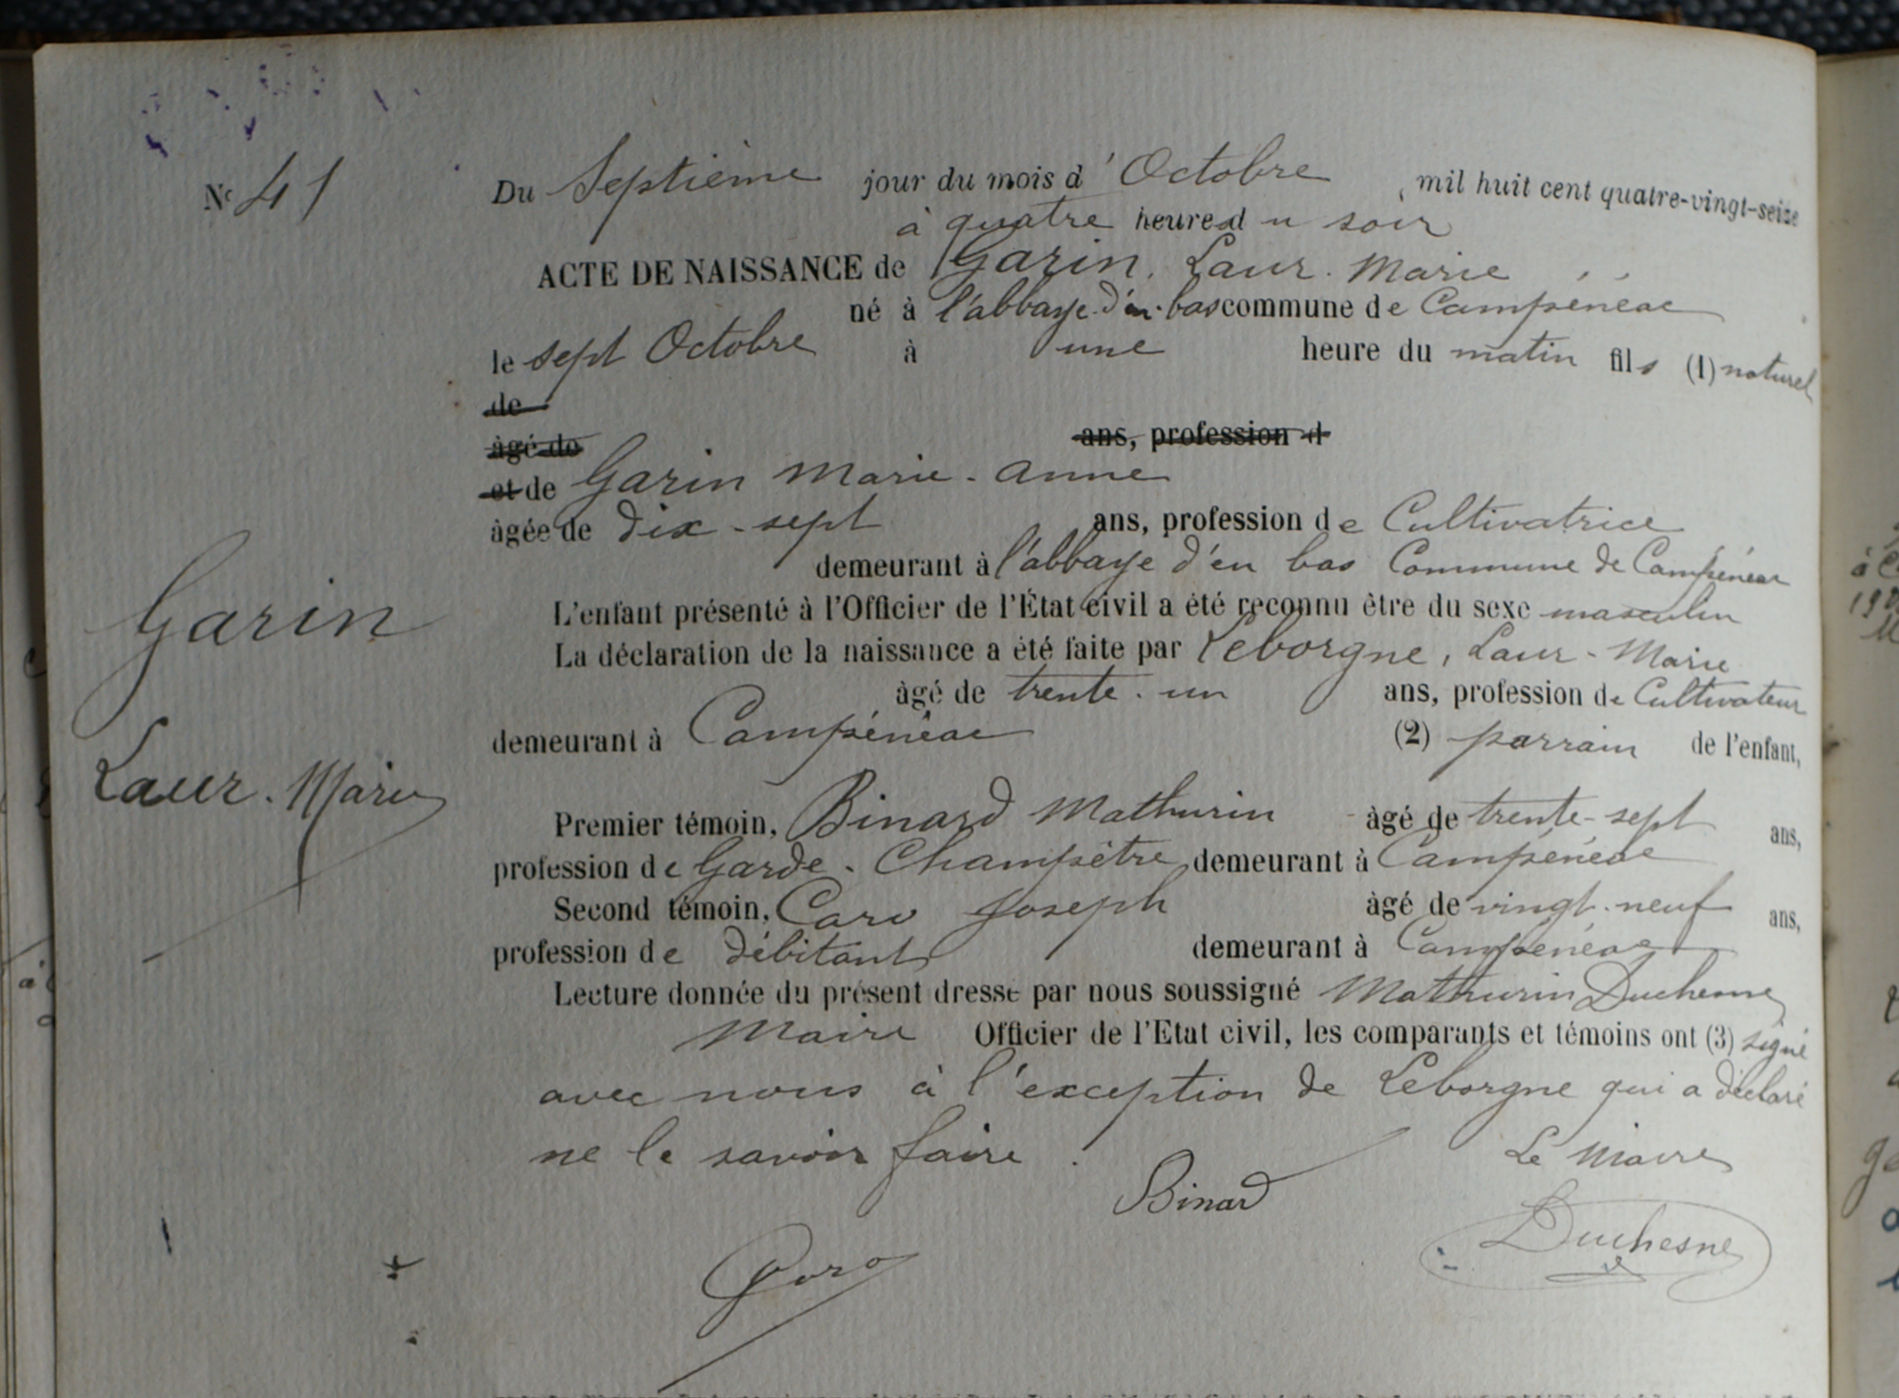 Nº 41
Du Septième jour du mois d'Octobre, mil huit cent quatre-vingt-seize
à quatre heures du soir
ACTE DE NAISSANCE de Garin, Laur-Marie
né à l'abbaye d'en-bas commune de Campénéac
le sept Octobre à une heure du matin fils (1) naturel
de
âgé de ans, profession d
et de Garin Marie-Anne
âgée de dix-sept ans, profession de Cultivatrice
demeurant à l'abbaye d'en bas Commune de Campénéac
L'enfant présenté à l'Officier de l'État civil a été reconnu être du sexe masculin
La déclaration de la naissance a été faite par Leborgne, Laur-Marie
âgé de trente-un ans, profession de Cultivateur
demeurant à Campénéac (2) parrain de l'enfant,
Garin
Laur-Marie
Premier témoin, Binard Mathurin âgé de trente-sept ans,
profession de Garde-Champêtre demeurant à Campénéac
Second témoin, Caro Joseph âgé de vingt-neuf ans,
profession de débitant demeurant à Campénéac
Lecture donnée du présent dressé par nous soussigné Mathurin Duchesne
Maire Officier de l'Etat civil, les comparants et témoins ont (3) signé
avec nous à l'exception de Leborgne qui a déclaré
ne le savoir faire.
Le Maire
Binard
Duchesne
Caro